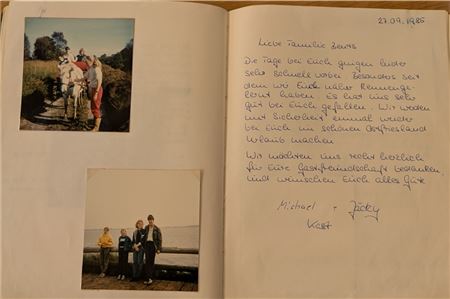 27.09.1986
Liebe Familie
Die Tage bei Euch gingen leider
sehr schnell vorbei. Besonders seit
dem wir Euch näher kennenge-
lernt haben. Es hat uns sehr
gut bei Euch gefallen. Wir werden
mit Sicherheit einmal wieder
bei Euch im schönen Ostfriesland
Urlaub machen
Wir möchten uns recht herzlich
für Eure Gastfreundschaft bedanken,
und wünschen Euch alles Gute
Michael